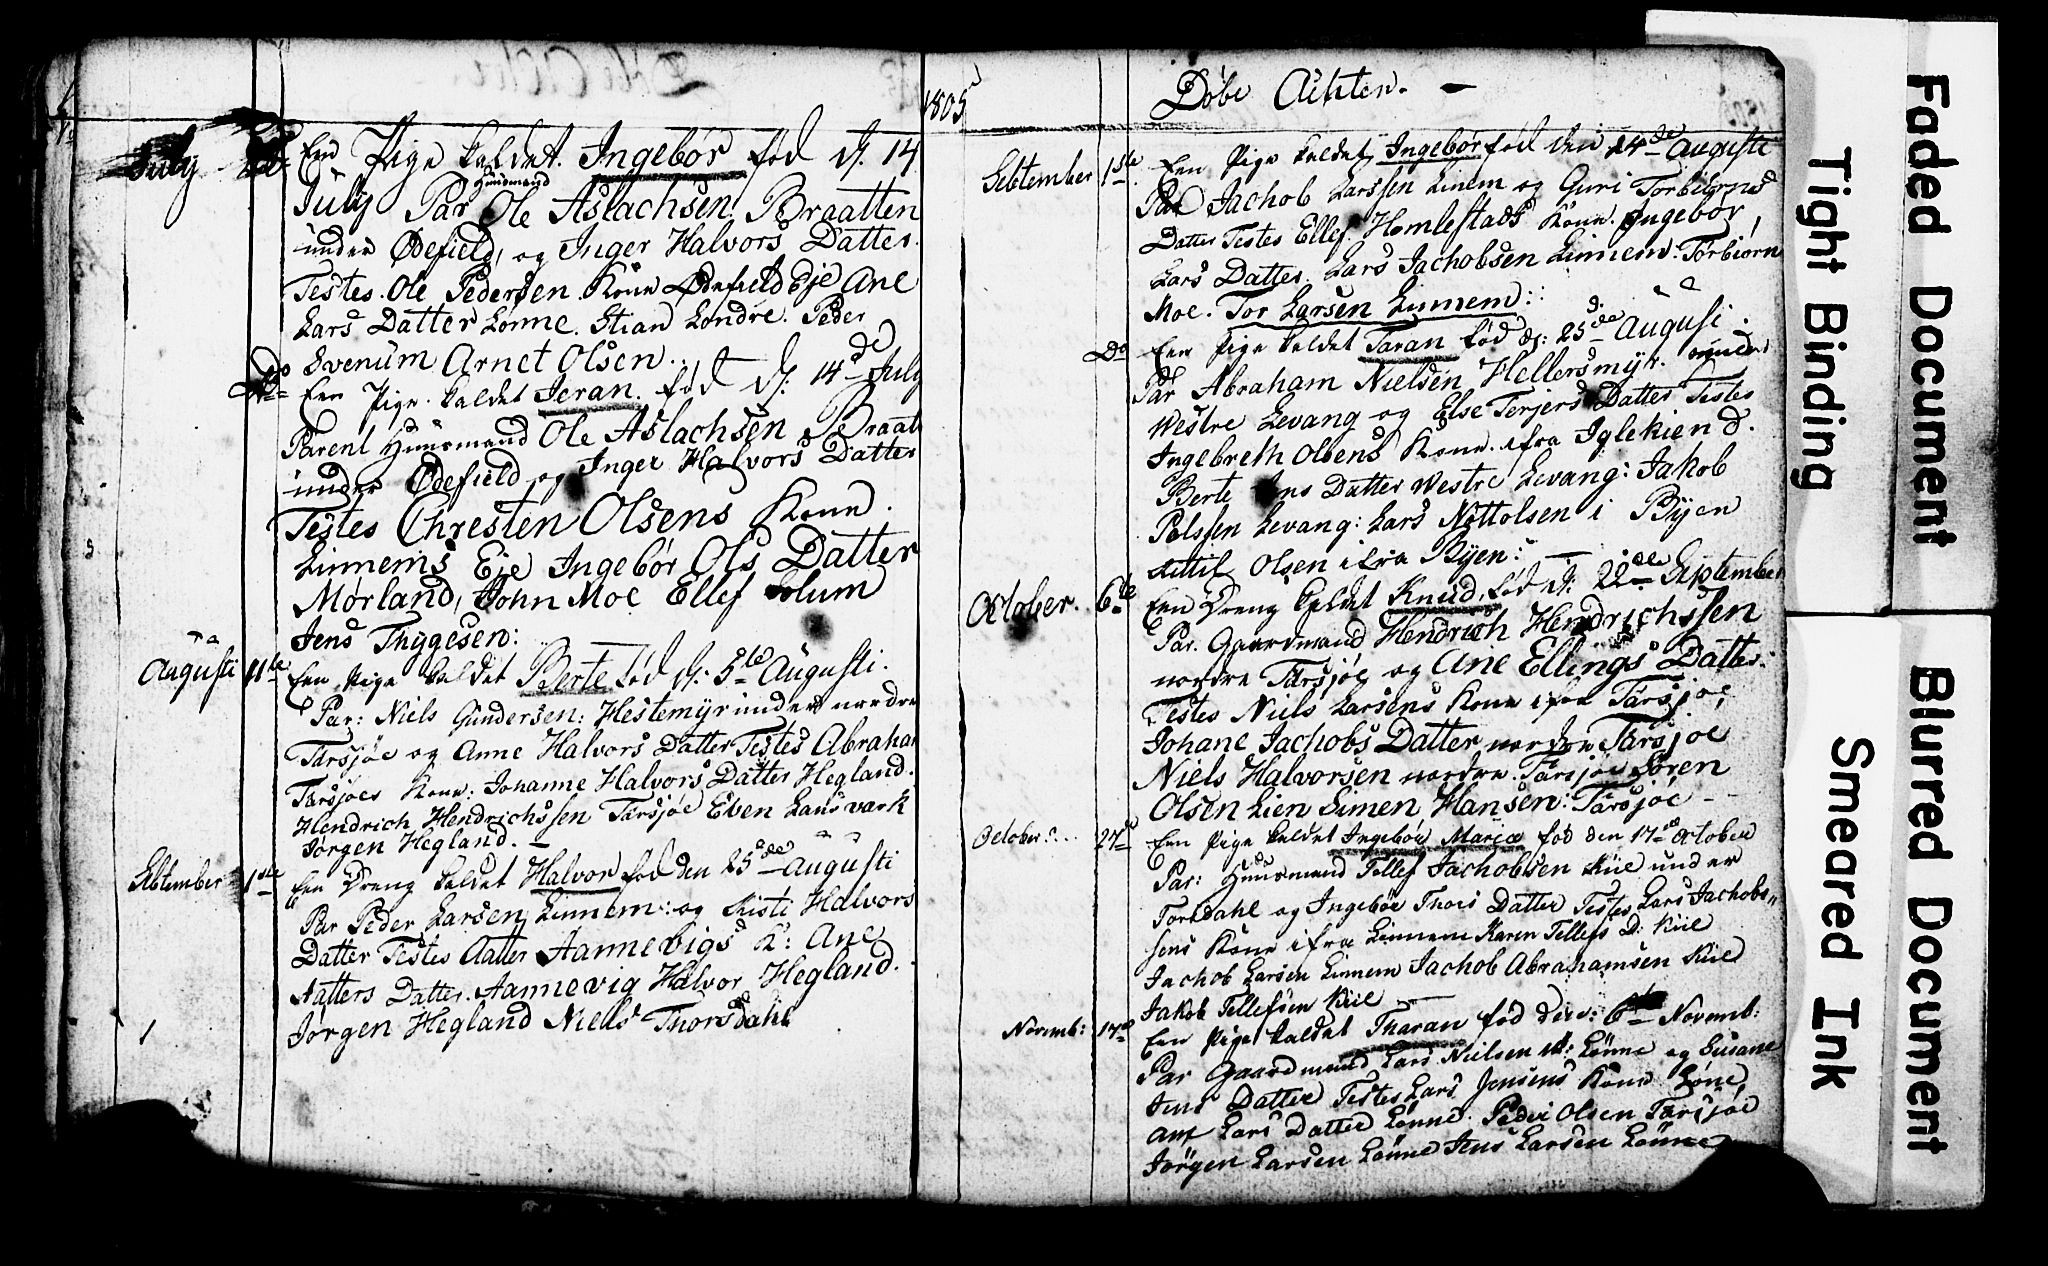 1805
July
Een Pige kaldet Ingebør fød d: 14
Huusmand
July Par Ole Aslachsen Braatten
under Ødefield, og Inger Halvors Datter.
Testes. Ole Pedersen Kone Ødefield Eje Ane
Lars Datter Lønne. Stian Londre. Peder
Svenum Arnet Olsen.
Do Een Pige kaldet Jeran fød d: 14de July
Parent Huusmand Ole Aslachsen Braat
under Ødefield og Inger Halvors Datter
Testes Chresten Olsens Kone.
Linnems Eje Ingebør Ols Datter
Mørland, John Moe Ellef Solum
Jens Thygesen:
Augusti 11te Een Pige kaldet Berte fød d: 5te Augusti.
Par: Niels Gundersen: Hestemyr under nordre
Tarsjøe og Anne Halvors Datter Testes Abraham
Tarsjøes Kone: Johanne Halvors Datter Hegland.
Hendrich Hendrichssen Tarsjøe Even Lansværk
Jørgen Hegland. —
Sebtember 1ste Een Dreng kaldet Halvor fød den 25de Augusti
Par Peder Larsen Linnem: og Kisti Halvors
Datter Testes Aatter Aannevigs K: Ane
Aatters Datter. Aannevig Halvor Hegland.
Jørgen Hegland Niels Thorsdahl
Døbe Achten. —
Sebtember 1ste Een Pige kaldet Ingebør fød den 24de Augusti
Par Jachob Larssen Linem og Guri Torbiørns
Datter Testes Ellef Homlestads Kone. Ingebør,
Lars Datter. Lars Jachobsen Linnem: Torbiørn
Moe. Tor Larsen Linnem:
Do Een Pige kaldet Taran fød d: 25de Augusi.
Par Abraham Nielsen Hellersmyr. under
Westre Levang og Else Terjers Datter Testes
Ingebreth Olsens Kone. ifra Iglekien d.
Berte Datter Westre Levang: Jakob
Polssen Levang: Lars Nottolsen i Byen
Kittil Olsen ifra Byen: —
October. 6te Een Dreng kaldet Knud, fød d: 22de September
Par. Gaardmand Hendrich Hendrichssen
nordre Tarsjøe og Ane Ellings Datter.
Testes Niels Larsens Kone ifra Tarsjøe,
Johane Jachobs Datter nordre Tarsjøe
Niels Halvorsen nordre. Tarsjøe Søren
Olsen Lien Simen Hansen: Tarsjøe - -
October: 27de Een Pige kaldet Ingebør Maria fød den 17de October
Par: Huusmand Tellef Jachobsen Kiie under
Torsdahl og Ingebør Thors Datter Testes Lars Jachobs„
sens Kone ifra Linnem Karen Tellefs D: Kiie
Jachob Larsen Linnem Jachob Abrahamsen Kiie
Jakob Tellefsen Kiie —
Novemb: 17de Een Pige kaldet Tharan fød den: 6te Novemb:
Par Gaardmand Lars Nielsen Lønne og Susane
Jens Datter Testes Lars Jensens Kone Løne,
Ane Lars Datter Lønne. Peder Olsen Tarsjøe
Jørgen Larsen Lønne Jens Larsen Lønne
Faded Document
Tight Binding
Blurred Document
Smeared Ink